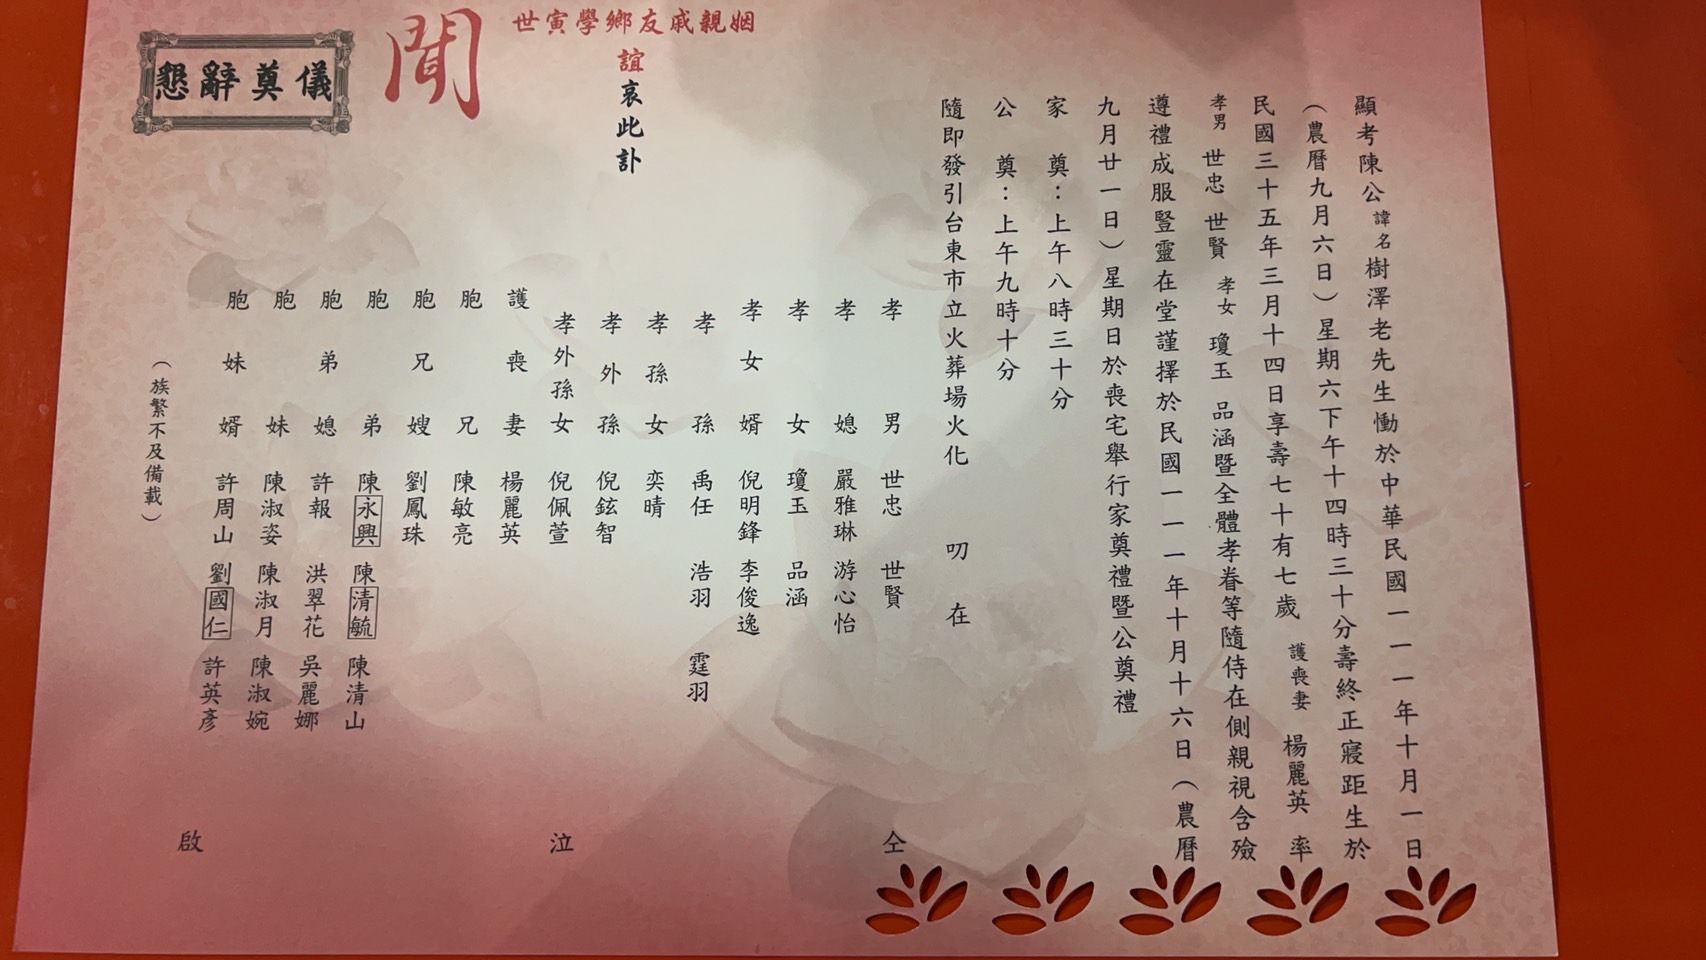 顯考陳公諱名樹澤老先生慟於中華民國一一一年十月一日
（農曆九月六日）星期六下午十四時三十分壽終正寢距生於
民國三十五年三月十四日享壽七十有七歲 護喪妻 楊麗英 率
孝男 世忠 世賢 孝女 瓊玉 品涵暨全體孝眷等隨侍在側親視含殮
遵禮成服豎靈在堂謹擇於民國一一一年十月十六日（農曆
九月廿一日）星期日於喪宅舉行家奠禮暨公奠禮
家 奠：上午八時三十分
公 奠：上午九時十分
隨即發引台東市立火葬場火化 叨 在
姻親戚友鄉學寅世
誼哀此訃
聞
懇辭奠儀
孝男 世忠 世賢
孝媳 嚴雅琳 游心怡
孝女 瓊玉 品涵
孝女婿 倪明鋒 李俊逸
孝孫 禹任 浩羽 霆羽
孝孫女 奕晴
孝外孫 倪鉉智
孝外孫女 倪佩萱
護喪妻 楊麗英
胞兄 陳敏亮
胞兄嫂 劉鳳珠
胞弟 陳永興 陳清毓 陳清山
胞弟媳 許報 洪翠花 吳麗娜
胞妹 陳淑姿 陳淑月 陳淑婉
胞妹婿 許周山 劉國仁 許英彥
（族繁不及備載）
仝 泣 啟